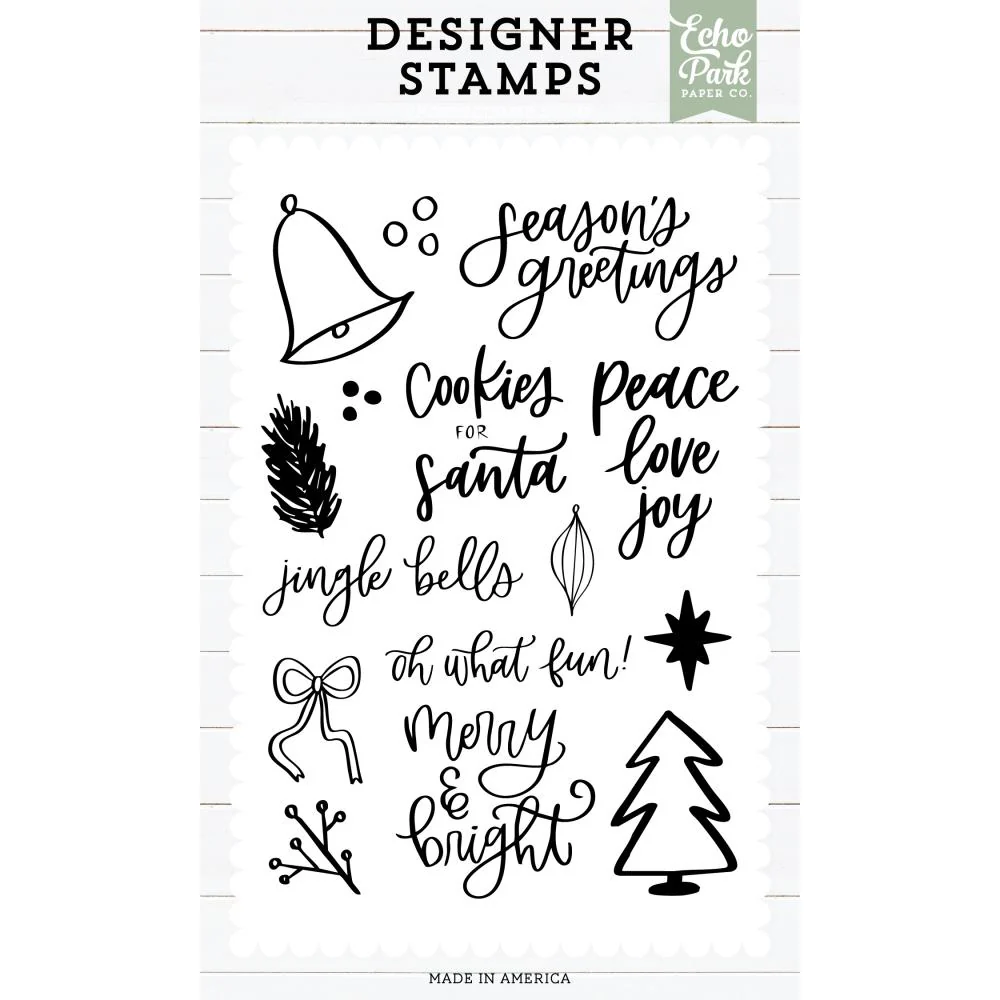 DESIGNER
STAMPS
Echo
Park
PAPER CO.
season's
greetings
Cookies
FOR
santa
peace
love
joy
jingle bells
oh what fun!
merry
&
bright
MADE IN AMERICA